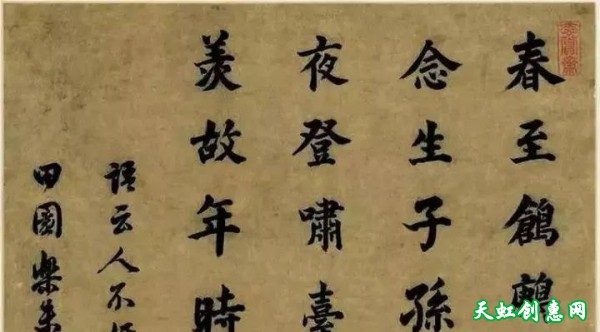 春至鶬鶊
念生子孫
夜登嘯臺
羨故年時
語云人不
田園樂
天虹创惠网